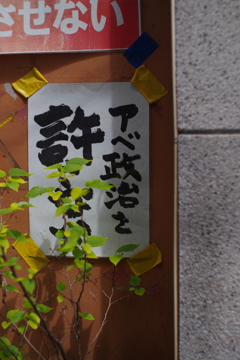 させない
アベ政治を
許さ